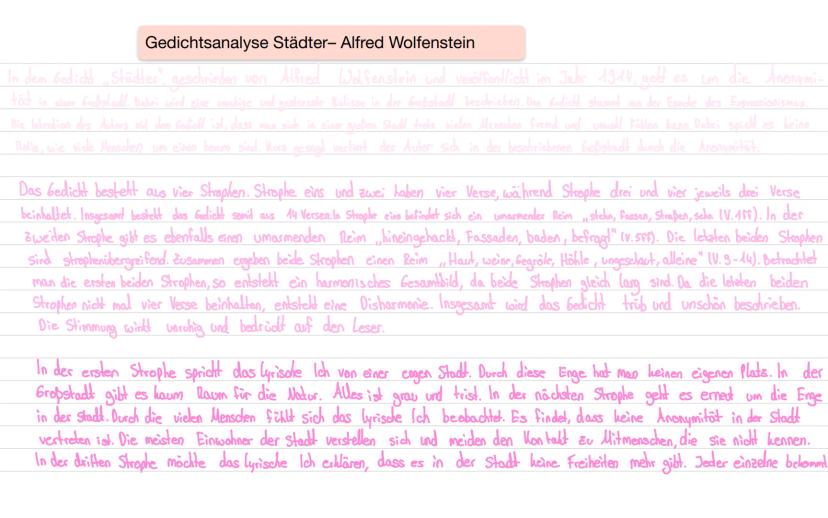 Gedichtsanalyse Städter– Alfred Wolfenstein
In dem Gedicht „Städter", geschrieben von Alfred Wolfenstein und veröffentlicht im Jahr 1914, geht es um die Anonymi-
tät in einer Großstadt. Dabei wird eine und Kulisse in der Großstadt beschrieben. Das Gedicht stammt aus der Epoche des Expressionismus.
Die Intention des Autors mit dem Gedicht ist, dass man sich in einer großen Stadt trotz vielen Menschen fremd und fühlen kann. Dabei spielt es keine
Rolle, wie viele Menschen um einen herum sind. Kurz gesagt verliert der Autor sich in der beschriebenen Großstadt durch die Anonymität.
Das Gedicht besteht aus vier Strophen. Strophe eins und zwei haben vier Verse, während Strophe drei und vier jeweils drei Verse
beinhaltet. Insgesamt besteht das Gedicht somit aus 14 Versen. In Strophe eins befindet sich ein umarmender Reim „stehn, fassen, Straßen, sehn (V.1ff). In der
zweiten Strophe gibt es ebenfalls einen umarmenden Reim „hineingehackt, Fassaden, baden, befragt" (V.5ff). Die letzten beiden Strophen
sind strophenübergreifend. Zusammen ergeben beide Strophen einen Reim „Haut, weine, Gegröle, Höhle, ungeschaut, alleine" (V.9-14). Betrachtet
man die ersten beiden Strophen, so entsteht ein harmonisches Gesamtbild, da beide Strophen gleich lang sind. Da die letzten beiden
Strophen nicht mal vier Verse beinhalten, entsteht eine Disharmonie. Insgesamt wird das Gedicht trüb und unschön beschrieben.
Die Stimmung wirkt unruhig und bedrückt auf den Leser.
In der ersten Strophe spricht das lyrische Ich von einer engen Stadt. Durch diese Enge hat man keinen eigenen Platz. In der
Großstadt gibt es kaum Raum für die Natur. Alles ist grau und trist. In der nächsten Strophe geht es erneut um die Enge
in der Stadt. Durch die vielen Menschen fühlt sich das lyrische Ich beobachtet. Es findet, dass keine Anonymität in der Stadt
vertreten ist. Die meisten Einwohner der Stadt verstellen sich und meiden den Kontakt zu Mitmenschen, die sie nicht kennen.
In der dritten Strophe möchte das lyrische Ich erklären, dass es in der Stadt keine Freiheiten mehr gibt. Jeder einzelne bekommt